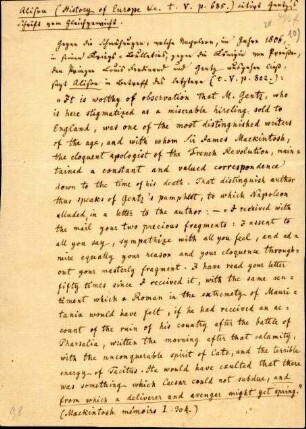 Alison (History of Europe &c. t. V. p. 635.) citirt Gentz's
Schrift vom Gleichgewicht.
10)
Gegen die Schmähungen, welche Napoleon, im Jahre 1806,
in seinen Kriegs-Bulletins, gegen die Königin von Preußen,
den Prinzen Louis Ferdinand und Gentz
sagt Alison in Betreff des letztern (t. V. p. 802.):
"It is worthy of observation that M. Gentz, who
is here stigmatized as a miserable hireling, sold to
England, was one of the most distinguished writers
of the age, and with whom Sir James Mackintosh,
the eloquent apologist of the French Revolution, main-
tained a constant and valued correspondence
down to the time of his death. That distinguish author
thus speaks of Gentz's pamphlet, to which Napoleon
alluded, in a letter to the author: — I received with
the mail your two precious fragments: I assent to
all you say, sympathize with all you feel, and ad-
mire equally your reason and your eloquence through-
out your masterly fragment. I have read your letter
fifty times since I received it, with the same sen-
timent which a Roman in the extremity of Mauri-
tania would have felt, if he had received an ac-
count of the ruin of his country after the battle of
Pharsalia, written the morning after that calamity,
with the unconquerable spirit of Cato, and the terrible
energy of Tacitus. He would have caulted that there
was something which Caesar could not subdue, and
from which a deliverer and avenger might yet spring."
(Mackintosh mémoirs I. 304.)